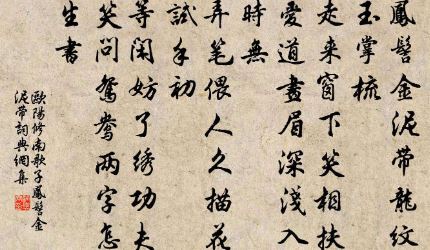 鳳髻金泥帶龍紋
玉掌梳
走来窗下笑相扶
愛道畫眉深淺入
時無
弄筆偎人久描花
試手初
等閑妨了绣功夫
笑問鴛鴦兩字怎
生書
歐陽修南歌子鳳髻金
泥带詞典網集